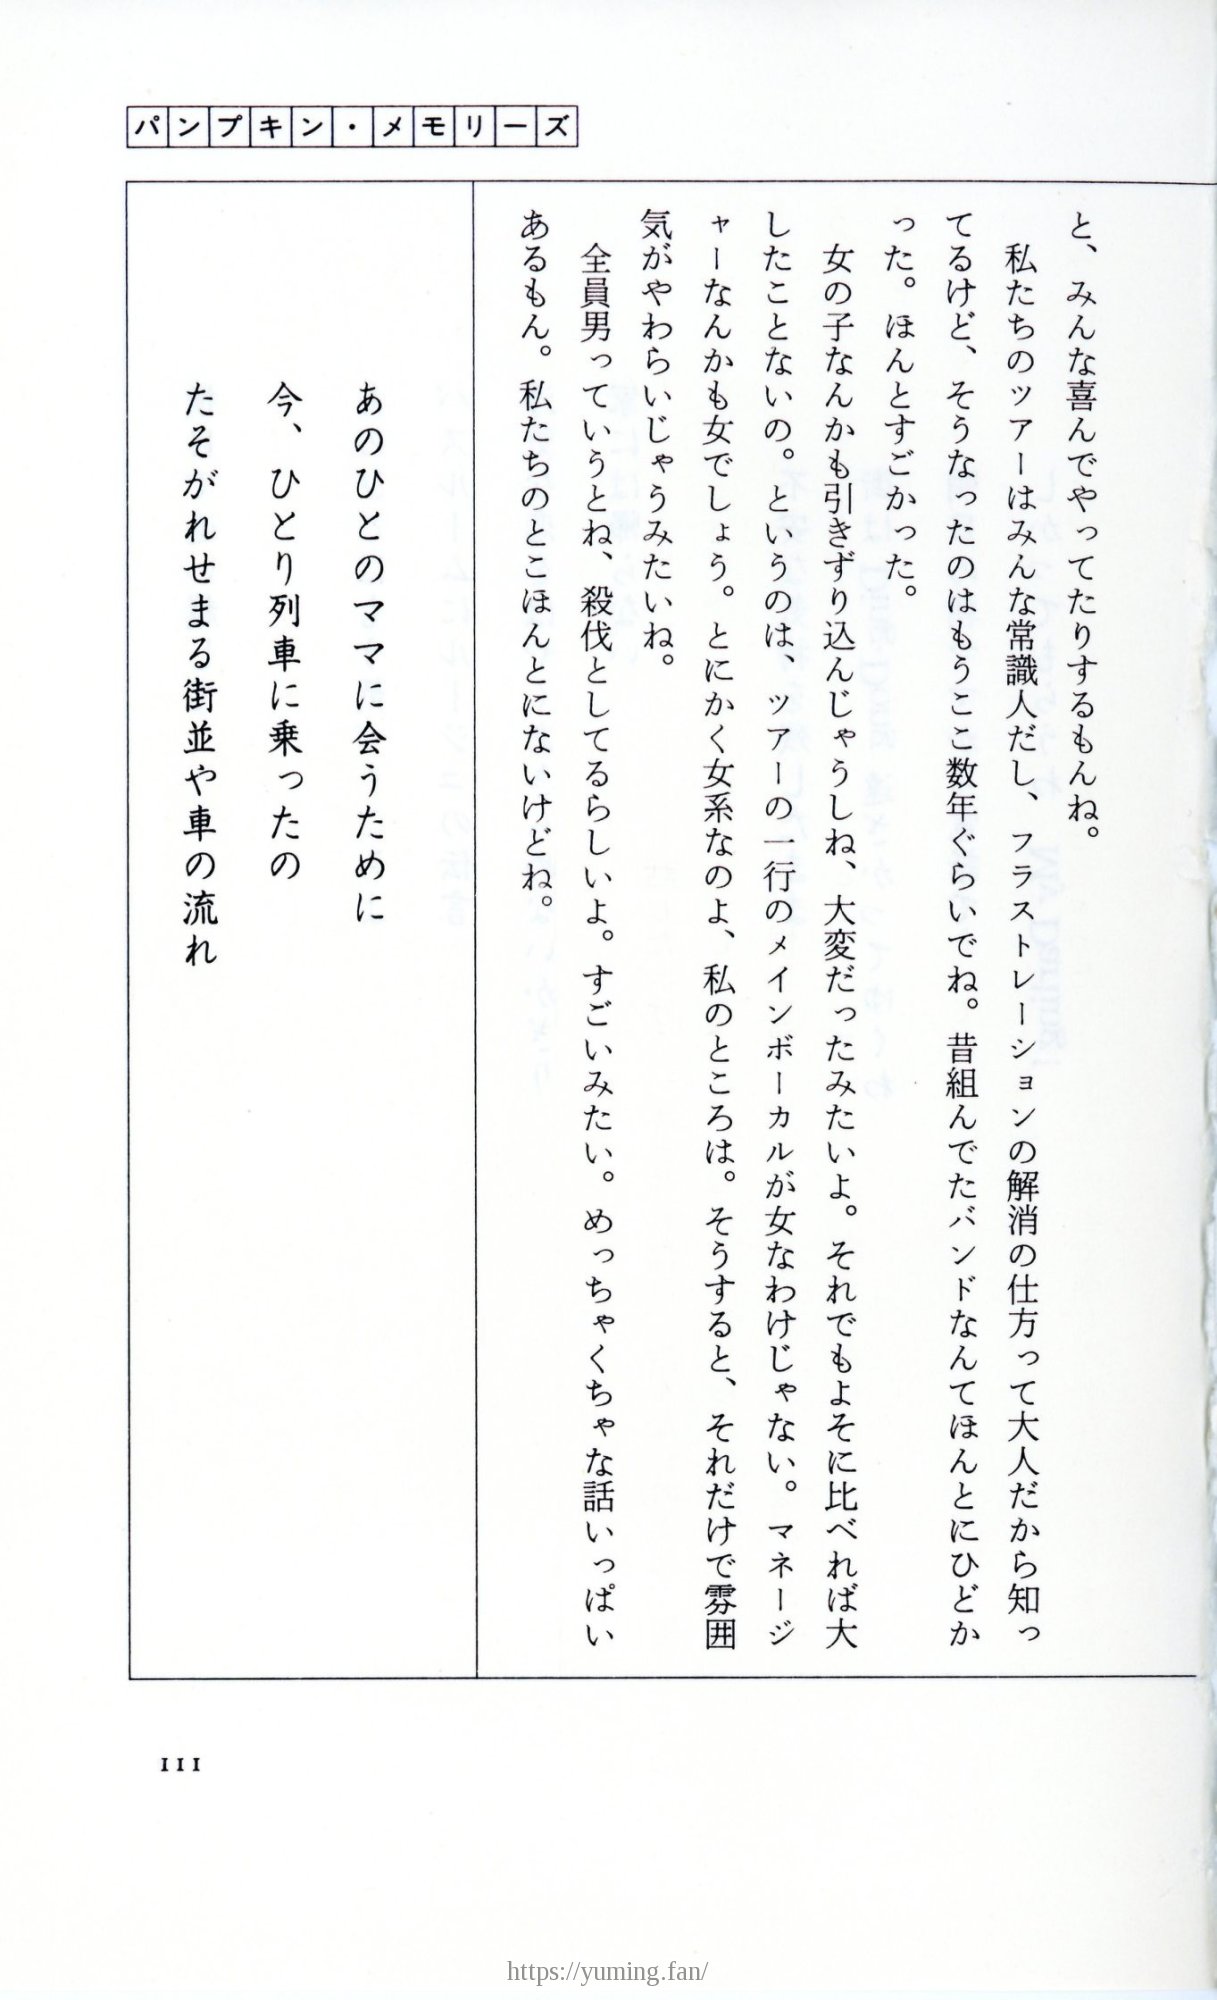 パンプキン・メモリーズ
と、みんな喜んでやってたりするもんね。
私たちのツアーはみんな常識人だし、フラストレーションの解消の仕方って大人だから知っ
てるけど、そうなったのはもうここ数年ぐらいでね。昔組んでたバンドなんてほんとにひどか
った。ほんとすごかった。
女の子なんかも引きずり込んじゃうしね、大変だったみたいよ。それでもよそに比べれば大
したことないの。というのは、ツアーの一行のメインボーカルが女なわけじゃない。マネージ
ャーなんかも女でしょう。とにかく女系なのよ、私のところは。そうすると、それだけで雰囲
気がやわらいじゃうみたいね。
全員男っていうとね、殺伐としてるらしいよ。すごいみたい。めっちゃくちゃな話いっぱい
あるもん。私たちのとこほんとにないけどね。
あのひとのママに会うために
今、ひとり列車に乗ったの
たそがれせまる街並や車の流れ
111
https://yuming.fan/